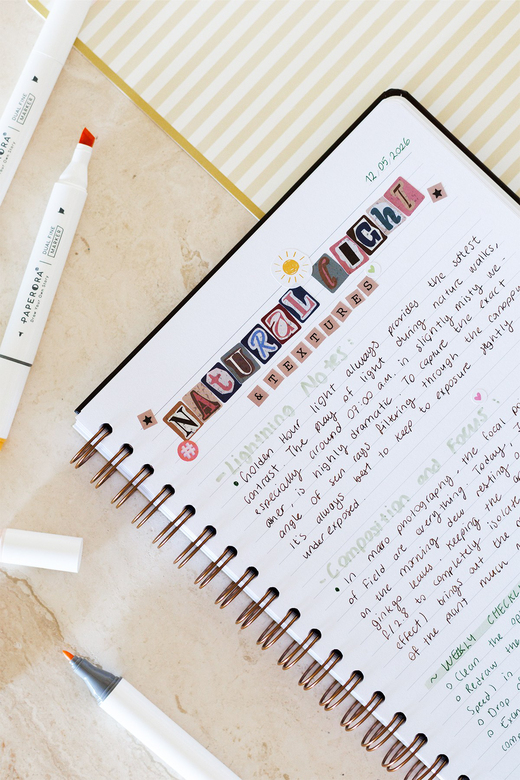 12.05.2026
NATURAL LIGHT
& TEXTURES
- Lightning Notes:
• Golden Hour light always provides the softest
contrast. The play of light during nature walks,
especially around 07:00 a.m. in slightly misty we-
ather is highly dramatic. To capture the exact
angle of sun rays filtering through the canopy
it's always best to keep to exposure slightly
under exposed
- Composition and Focus:
• In macro photography, the focal po
of Field are everything. Today,
on the morning dew resting o
ginkgo leaves. Keeping the
f/2.8 to completely isolate
effect) brings out the
of the plany much
~ WEEKLY CHECKL
o Clean the op
o Redraw the
Speed) in
o Drop o
o Exam
com
DUAL FINE
MARKER
PAPERORA
Draw Your Own Story
DUAL FINE
MARKER